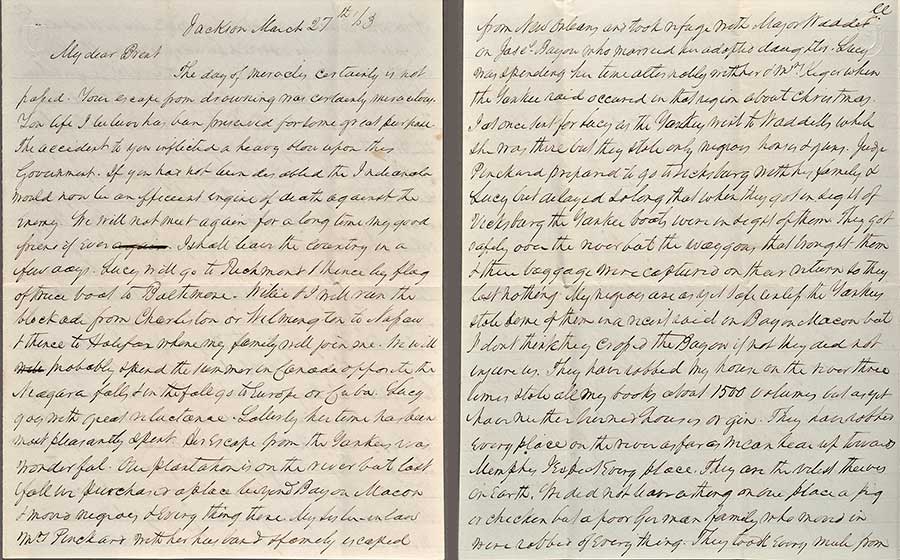 Jackson March 27th/63
My dear Brent
The day of miracles certainly is not
passed. Your escape from drowning was certainly miraculous.
Your life I believe has been preserved for some great purpose.
The accident to you inflicted a heavy blow upon this
Government. If you had not been disabled the Indianola
would now be an efficient engine of death against the
enemy. We will not meet again for a long time my good
friend if ever again. I shall leave the country in a
few days. Lucy will go to Richmond & thence by flag
of truce boat to Baltimore. Willie & I will run the
blockade from Charleston or Wilmington to Nassau
& thence to Halifax where my family will join me. We will
probably spend the summer in Canada opposite the
Niagara falls & in the fall go to Europe or Cuba. Lucy
goes with great reluctance. Latterly her time has been
most pleasantly spent. Her escape from the Yankees was
wonderful. Our plantation is on the river but last
fall we purchased a place beyond Bayou Macon
& moved negroes & every thing there. My sister-in-law
Mrs Pinchard with her husband & family escaped
from New Orleans and took refuge with Major Waddell
on Jose's Bayou who married her adopted daughter. Lucy
was spending her time alternately with her & Mrs when
the Yankee raid occured in that region about Christmas.
I at once sent for Lucy as the Yankeys went to Waddells while
she was there but they stole only negroes horses & guns. Judge
Pinchard prepared to go to Vicksburg with his family &
Lucy but delayed so long that when they got in sight of
Vicksburg the Yankee boats were in sight of them. They got
safely over the river but the waggons that brought them
& their baggage were captured on their return so they
lost nothing. My negroes are as yet safe unless the Yankeys
stole some of them in a recent raid on Bayou Macon but
I dont think they crossed the Bayou if not they did not
injure us. They have robbed my house on the river three
times stole all my books about 1500 volumes but as yet
have neither burned houses or gin. They have robbed
every place on the river as far as we can hear up towards
Memphis I expect every place. They are the vilest thieves
on Earth. We did not leave a thing on our place a pig
or chicken but a poor German family who moved in
were robbed of everything. They took every mule from